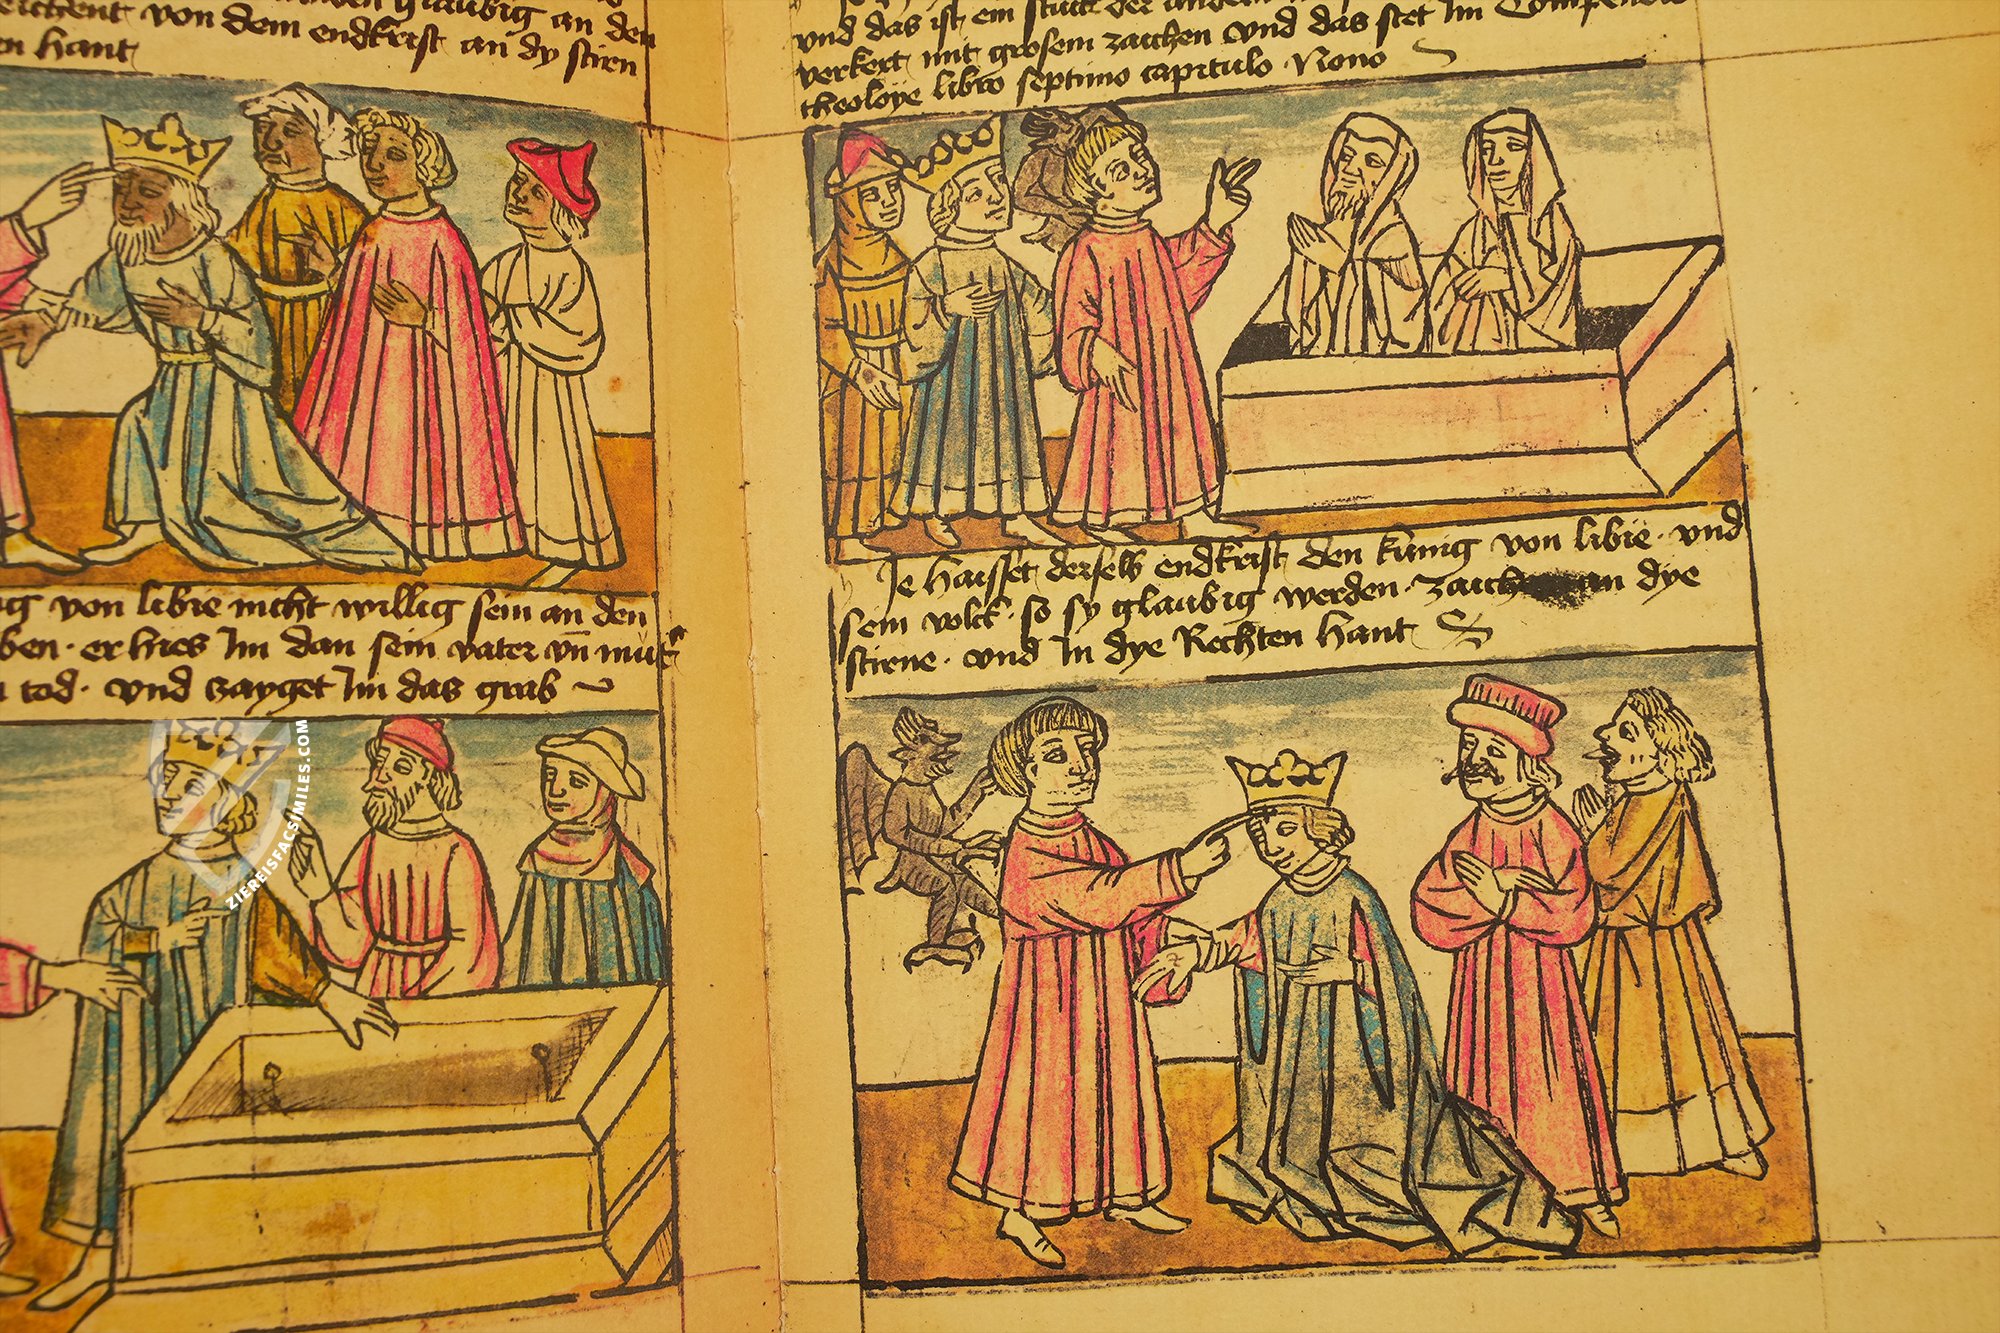 glaubig an den
von dem endkrist an dy stirn
en hant
von libie nicht willig sein an den
er hies Im dan sein vater vn̄ mut
tod · vnd zayget Im das grab
ZIEREISFACSIMILES.COM
vnd das ist ein stuck der andern
verkert mit grosem zaichen vnd das stet Im Compendio
theoloye libro septimo capitulo Nono
Je haisset derselb endkrist den kunig von libie · vnd
sein volck · so sy glaubig werden · zaich an dye
stirne · vnd In dye Rechten hant